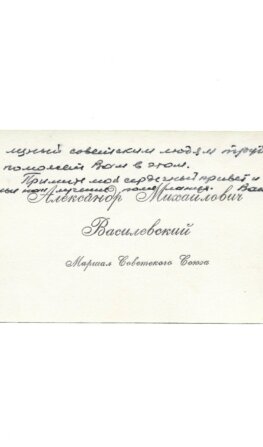 нужный советским людям труд
поможет Вам в этом.
Примите мой сердечный привет и
лучшие пожелания. Ваш
Александр Михайлович
Василевский
Маршал Советского Союза